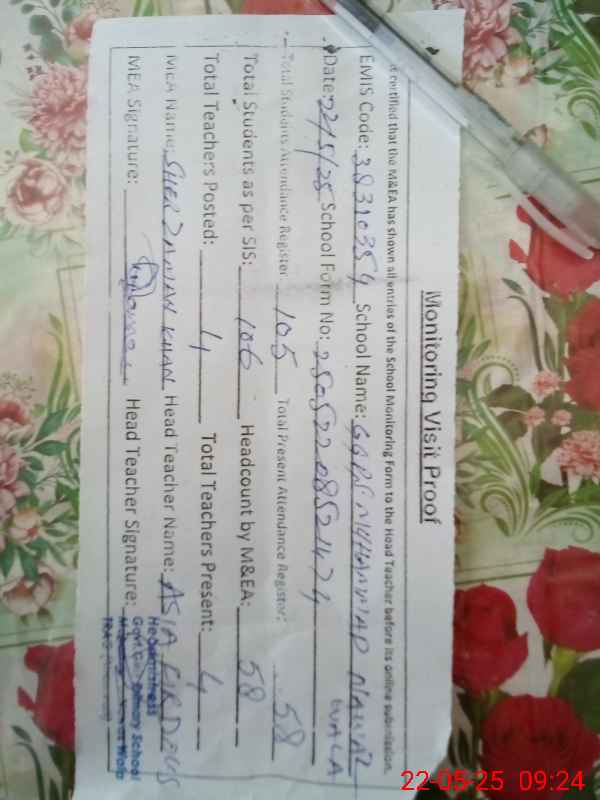 Monitoring Visit Proof
It is certified that the M&EA has shown all entries of the School Monitoring Form to the Head Teacher before its online submission.
EMIS Code: 38310354 School Name: GGPS MUHAMMAD NAWAZ WALA
Date: 22/5/25 School Form No: 250522085214 74
Total Students Attendance Register 105 Total Present Attendance Register: 58
Total Students as per SIS: 106 Headcount by M&EA: 58
Total Teachers Posted: 4 Total Teachers Present: 4
MEA Name: SHER ZAMAN KHAN Head Teacher Name: ASIA FIRDOUS
MEA Signature: Head Teacher Signature:
Headmistress
Govt. Primary School
22-05-25 09:24